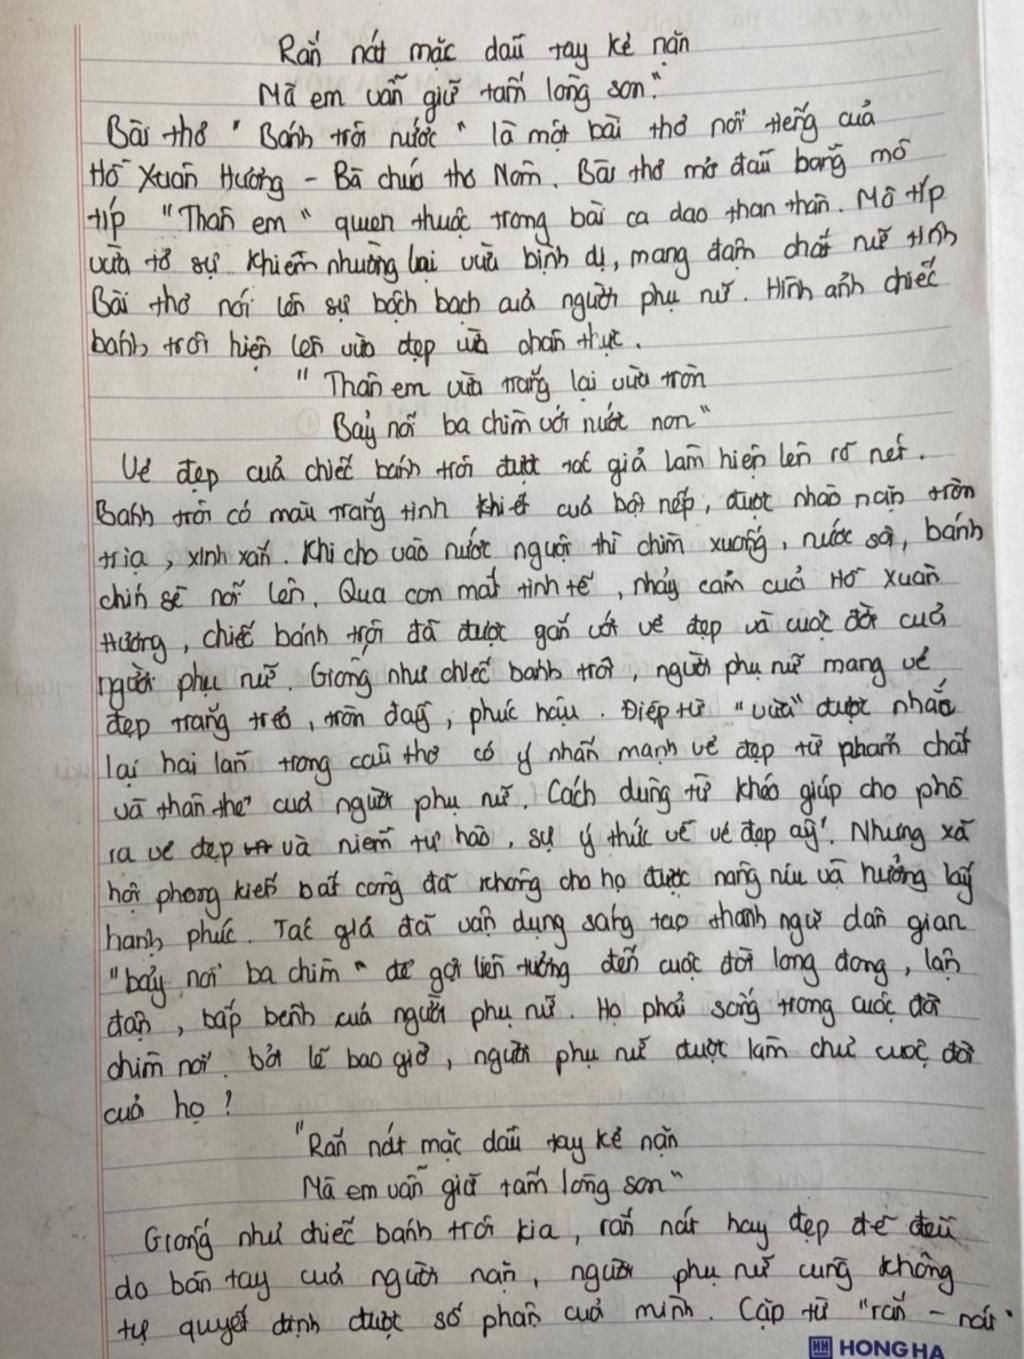 Rắn nát mặc dầu tay kẻ nặn
Mà em vẫn giữ tấm lòng son."
Bài thơ "Bánh trôi nước" là một bài thơ nổi tiếng của
Hồ Xuân Hương - Bà chúa thơ Nôm. Bài thơ mở đầu bằng mô
típ "Thân em" quen thuộc trong bài ca dao than thân. Mô típ
vừa tỏ sự khiêm nhường lại vừa bình dị, mang đậm chất nữ tính
Bài thơ nói lên sự bộch bạch của người phụ nữ. Hình ảnh chiếc
bánh trôi hiện lên vừa đẹp vừa chân thực.
"Thân em vừa trắng lại vừa tròn
Bảy nổi ba chìm với nước non"
Vẻ đẹp của chiếc bánh trôi được tác giả làm hiện lên rõ nét.
Bánh trôi có màu trắng tinh khiết của bột nếp, được nhào nặn tròn
trịa, xinh xắn. Khi cho vào nước nguội thì chìm xuống, nước sôi, bánh
chín sẽ nổi lên. Qua con mắt tinh tế, nhảy cảm của Hồ Xuân
Hương, chiếc bánh trôi đã được gắn với vẻ đẹp và cuộc đời của
người phụ nữ. Giống như chiếc bánh trôi, người phụ nữ mang vẻ
đẹp trắng trẻo, tròn đầy, phúc hậu. Điệp từ "vừa" được nhắc
lại hai lần trong câu thơ có ý nhấn mạnh vẻ đẹp từ phẩm chất
và thân thể của người phụ nữ. Cách dùng từ khéo giúp cho phô
ra vẻ đẹp và niềm tự hào, sự ý thức về vẻ đẹp ấy. Nhưng xã
hội phong kiến bất công đã không cho họ được nâng niu và hưởng lấy
hạnh phúc. Tác giả đã vận dụng sáng tạo thành ngữ dân gian
"bảy nổi ba chìm" để gợi liên tưởng đến cuộc đời long đong, lận
đận, bấp bênh của người phụ nữ. Họ phải sống trong cuộc đời
chìm nổi bởi lẽ bao giờ, người phụ nữ được làm chủ cuộc đời
của họ!
"Rắn nát mặc dầu tay kẻ nặn
Mà em vẫn giữ tấm lòng son"
Giống như chiếc bánh trôi kia, rắn nát hay đẹp đẽ đều
do bàn tay của người nặn, người phụ nữ cũng không
tự quyết định được số phận của mình. Cặp từ "rắn - nát"
HH HONG HA